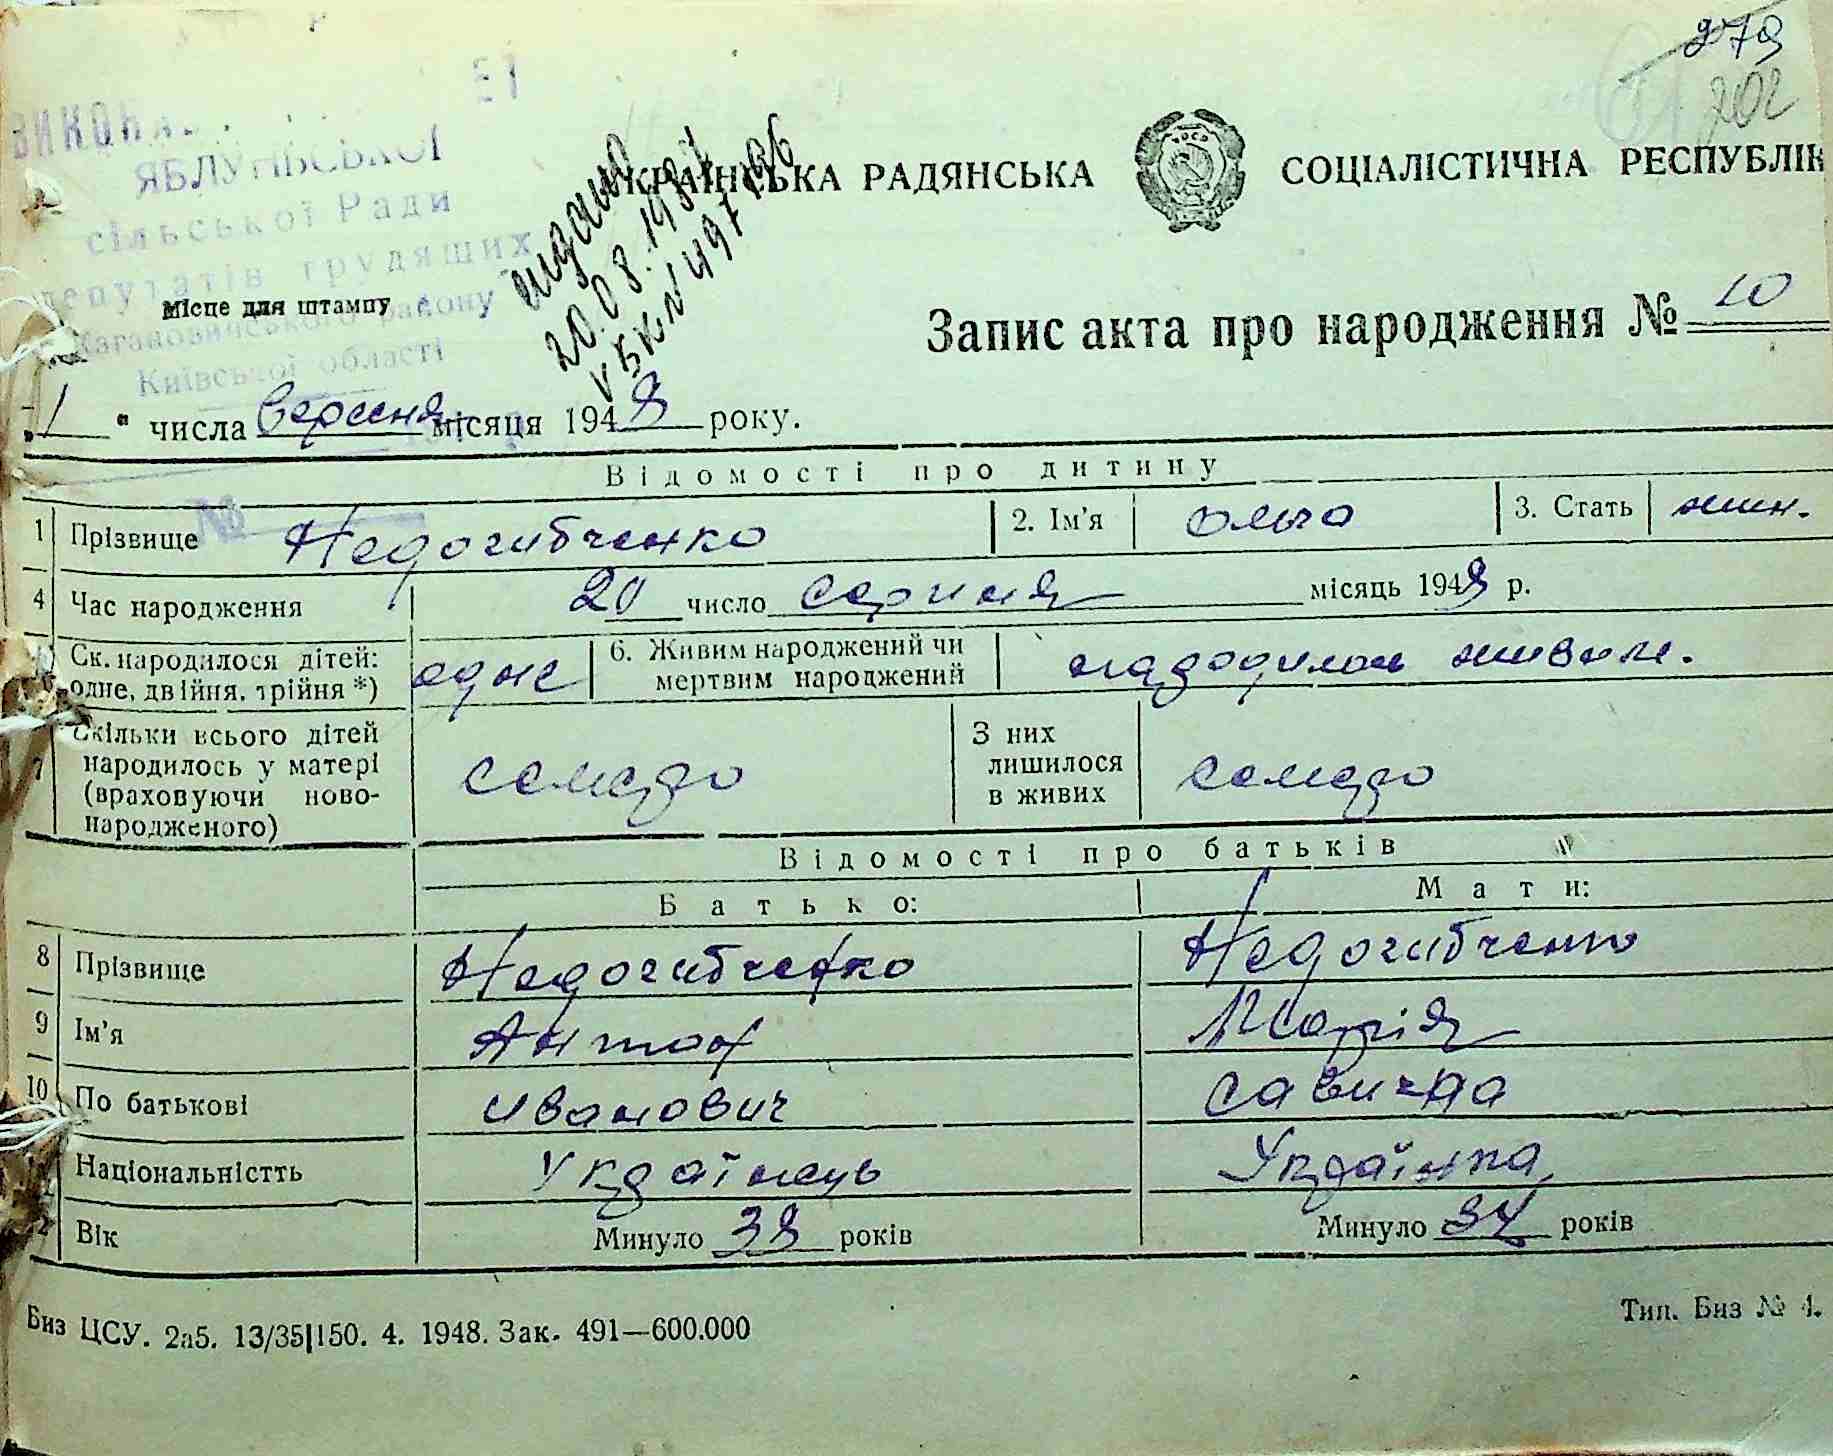 279
202
ЯБЛУНІВСЬКОЇ
сільської Ради
депутатів трудящих
Кагановичського району
Київської області
видано
20.08.198
УКРАЇНСЬКА РАДЯНСЬКА СОЦІАЛІСТИЧНА РЕСПУБЛІК
Місце для штампу
Запис акта про народження № 10
„1 “ числа Вересня місяця 1948 року.
№
Відомості про дитину
1 Прізвище Недогибченко 2. Ім'я Ольга 3. Стать жін.
4 Час народження 20 число серпня місяць 1948 р.
Ск. народилося дітей: одне, двійня, трійня *) одне 6. Живим народжений чи мертвим народжений народилась живою.
7 Скільки всього дітей народилось у матері (враховуючи ново-народженого) семеро З них лишилося в живих семеро
Відомості про батьків
Батько: Мати:
8 Прізвище Недогибченко Недогибченко
9 Ім'я Антон Марія
10 По батькові Иванович Савична
Національністть Українець Українка
Вік Минуло 38 років Минуло 34 років
Биз ЦСУ. 2а5. 13/35|150. 4. 1948. Зак. 491—600.000
Тип. Биз № 4.